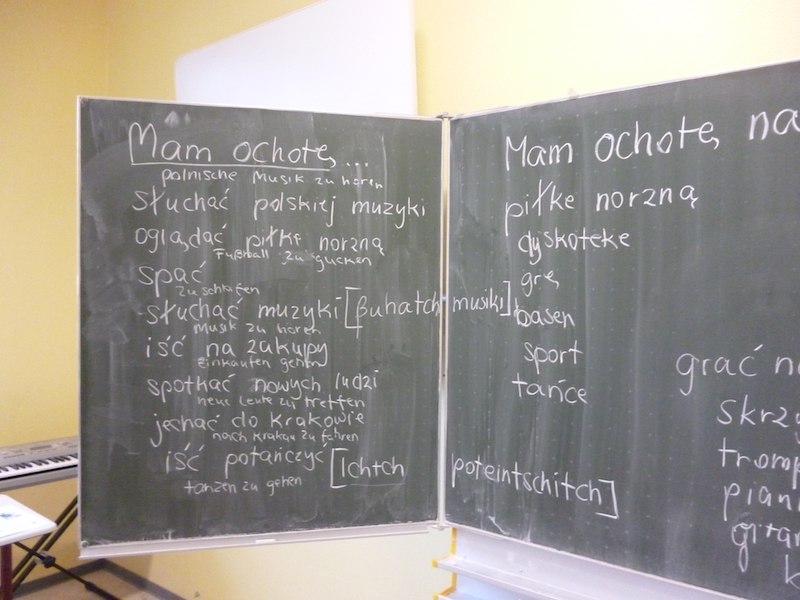 Mam ochotę ...
polnische Musik zu hören
słuchać polskiej muzyki
oglądać piłkę norzną
Fußball zu gucken
spać
zu schlafen
słuchać muzyki [βuhatch musiki]
Musik zu hören
iść na zakupy
einkaufen gehen
spotkać nowych ludzi
neue Leute zu treffen
jechać do Krakowie
nach Krakau zu fahren
iść potańczyć [Ichtch poteintschitch]
tanzen zu gehen
Mam ochotę na
piłke norzną
dyskoteke
grę
basen
sport
tańce
grać n
skrzy
tromp
piani
gitar
k